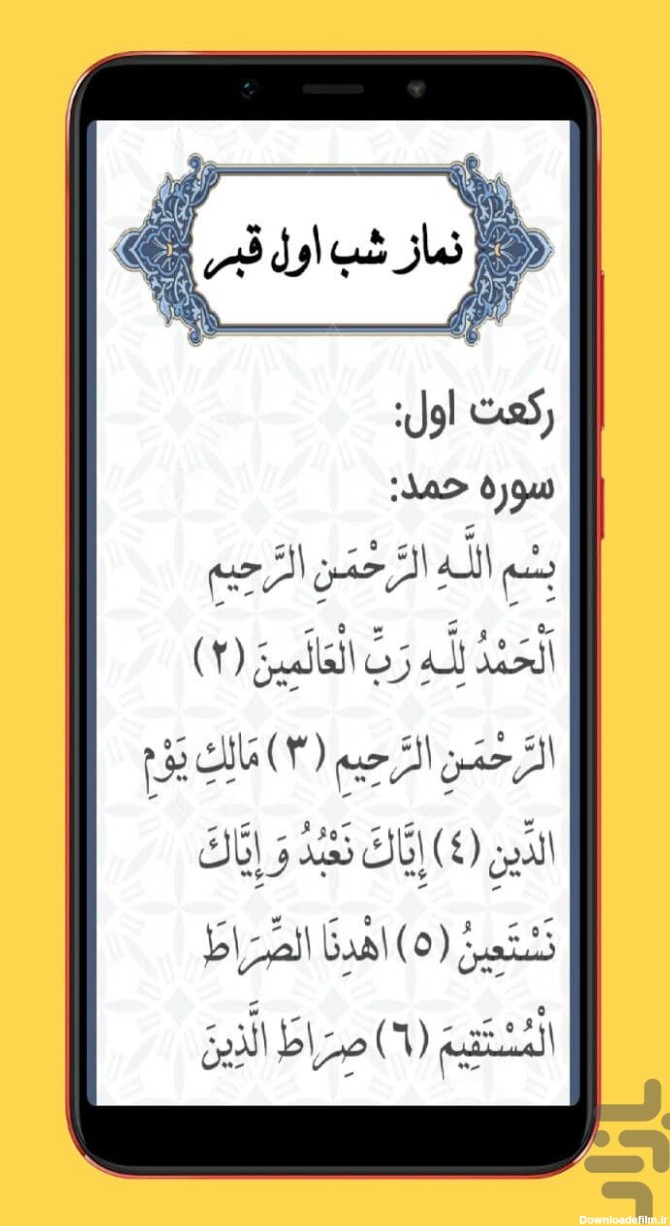 نماز شب اول قبر
رکعت اول:
سوره حمد:
بِسْمِ اللَّـهِ الرَّحْمَـنِ الرَّحِیمِ
اَلْحَمْدُ لِلَّـهِ رَبِّ الْعَالَمِینَ (۲)
الرَّحْمَـنِ الرَّحِیمِ (۳) مَالِكِ یَوْمِ
الدِّینِ (٤) إِیَّاكَ نَعْبُدُ وَ إِیَّاكَ
نَسْتَعِینُ (٥) اهْدِنَا الصِّرَاطَ
الْمُسْتَقِیمَ (٦) صِرَاطَ الَّذِینَ
بازار
Downloadefilm.ir